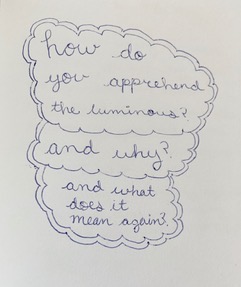 how do
you apprehend
the luminous?
and why?
and what
does it
mean again?